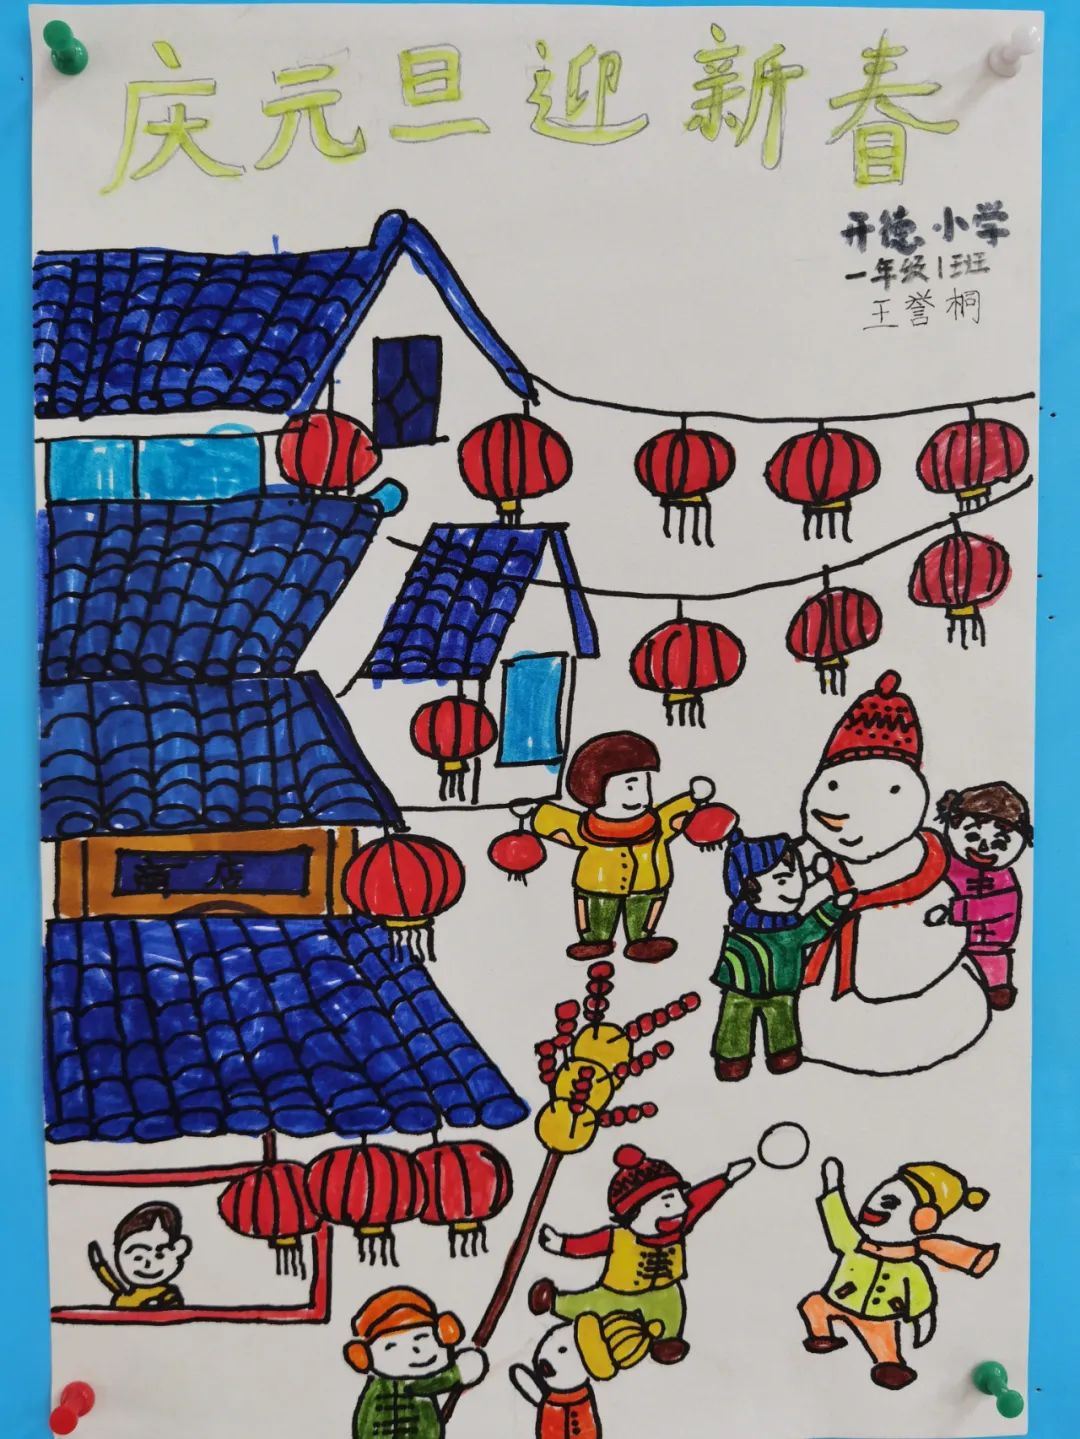 庆元旦迎新春
开德小学
一年级1班
王誉桐
酒店